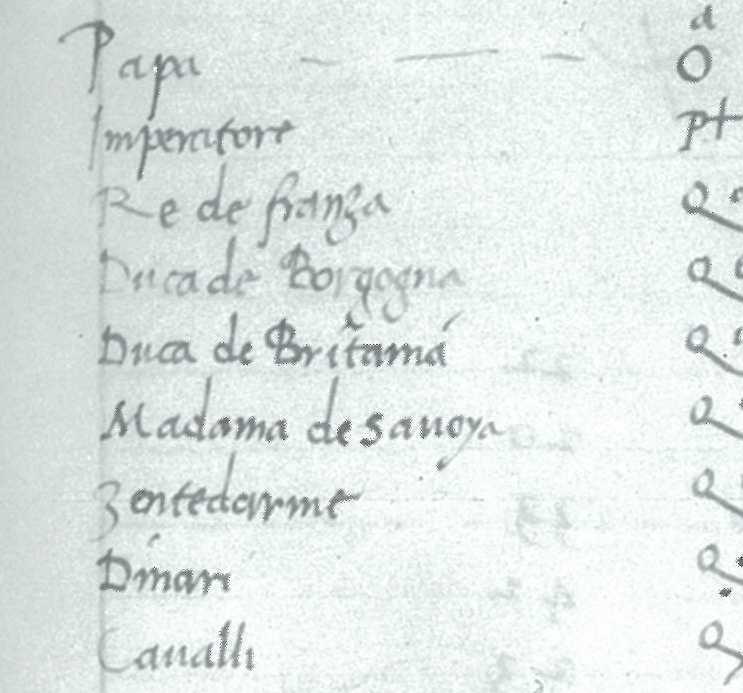 a
Papa O
Imperatore
Re de franza
Duca de Borgogna
Duca de Britama
Madama de Sauoya
Zentedarme
Dinari
Caualli